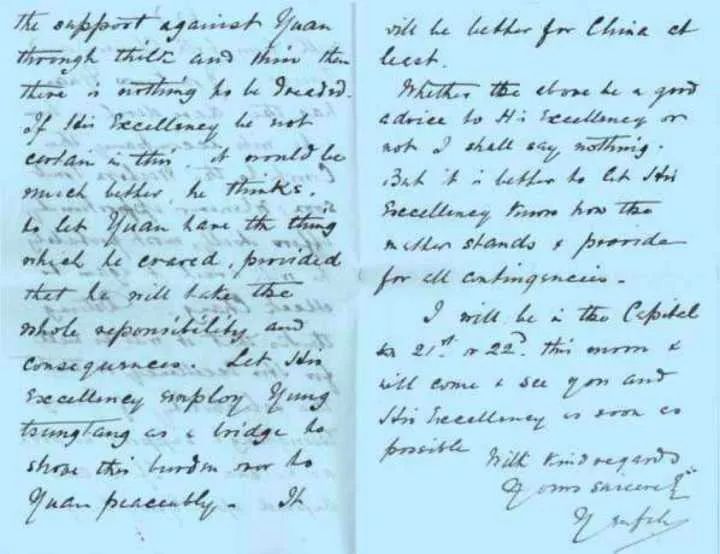 the support against Yuan
through thick and thin then
there is nothing to be dreaded.
If His Excellency be not
certain in this, it would be
much better, he thinks,
to let Yuan have the thing
which he craved, provided
that he will take the
whole reponsibility and
consequences. Let His
Excellency employ Yung
tsungtang as a bridge to
shove this burden over to
Yuan peaceably. It
will be better for China at
least.
Whether the above be a good
advice to His Excellency or
not I shall say nothing.
But it is better to let His
Excellency know how the
matter stands & provide
for all contingencies.
I will be in the Capital
21st or 22d. this moon &
will come & see you and
His Excellency as soon as
possible
With kind regards
Yours sincerely